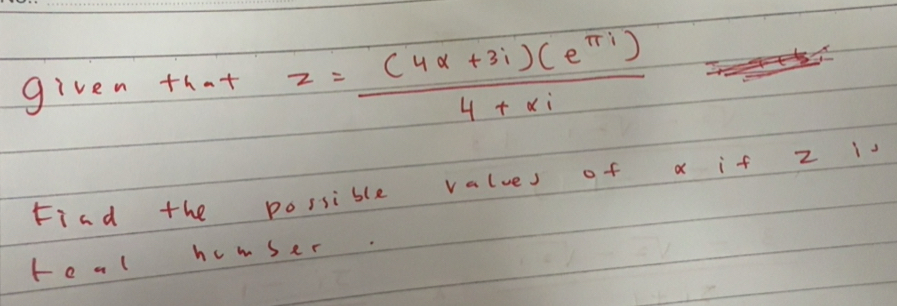 given that z = (4α + 3i)(e^πi) / 4 + αi
Find the possible values of α if z is
real number.